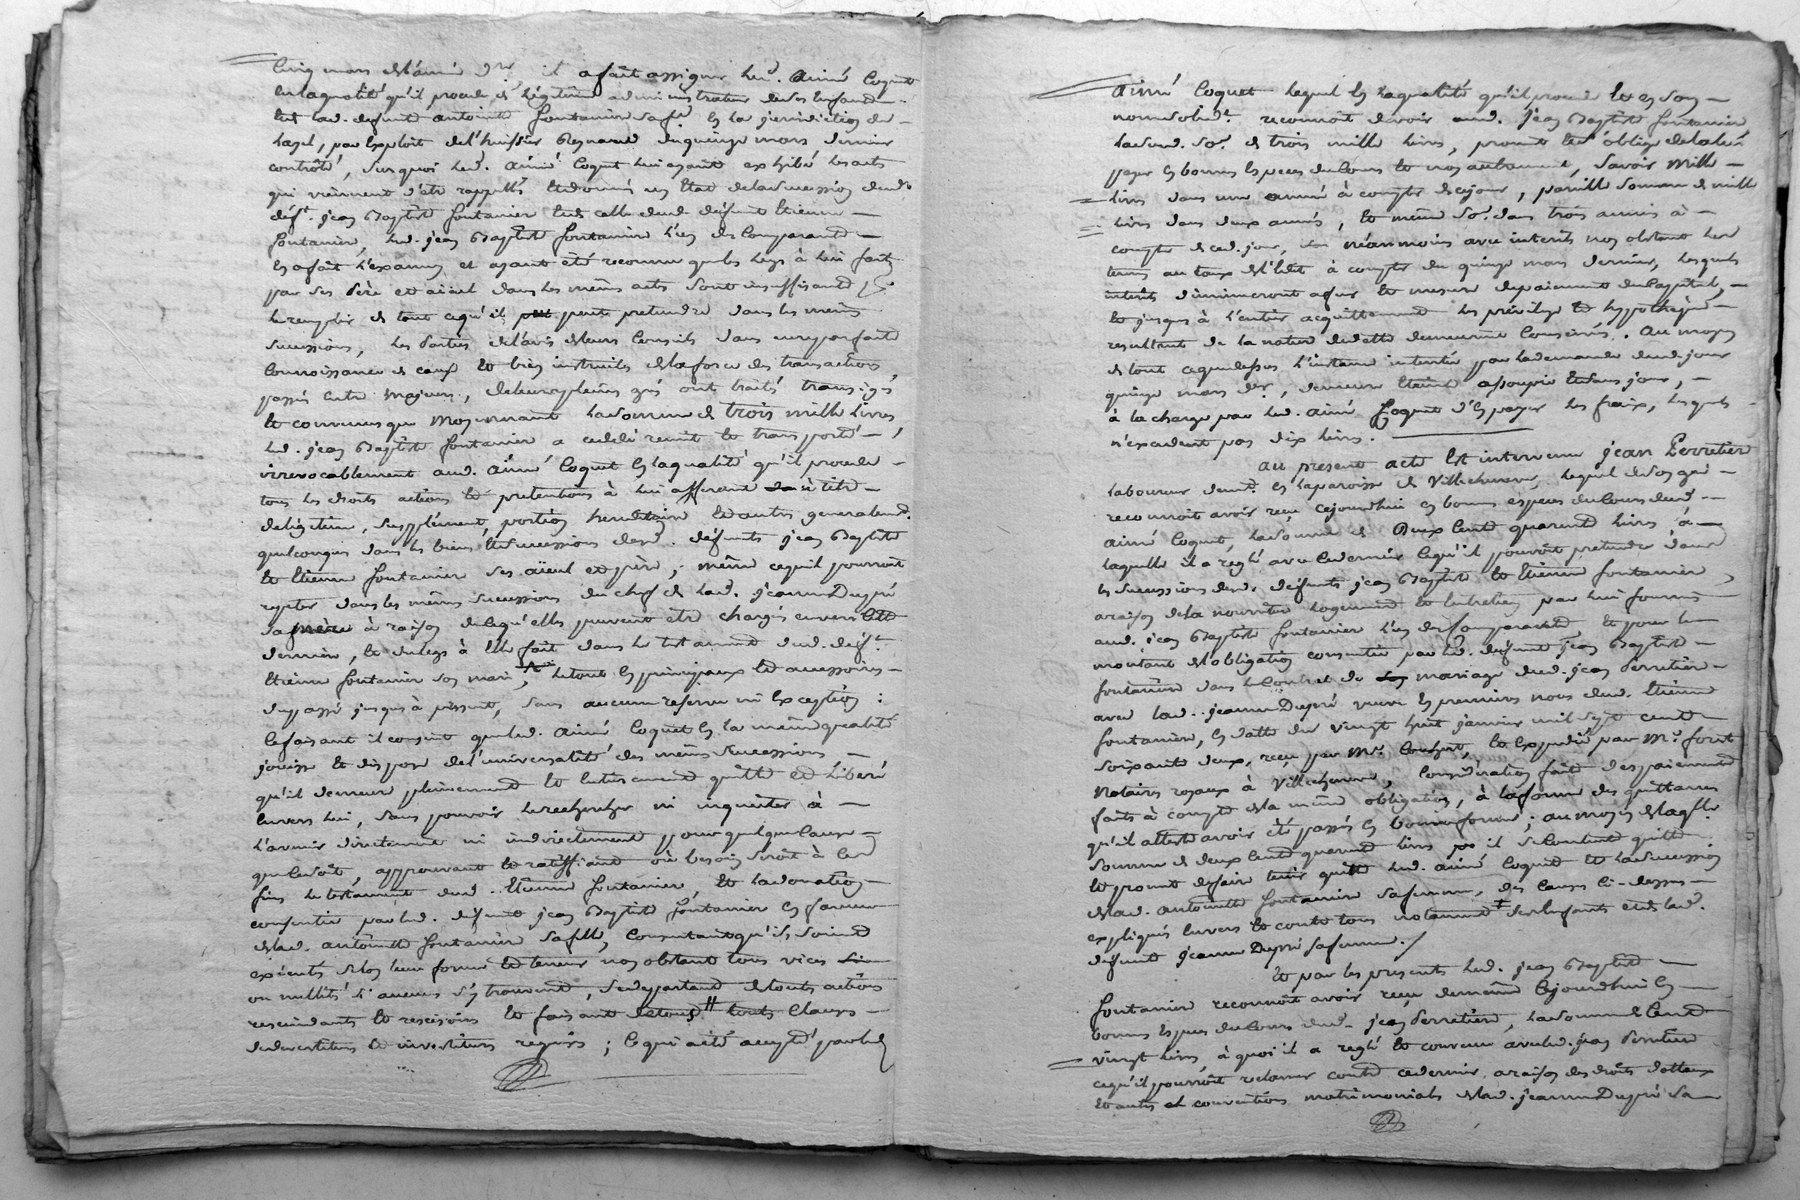 Cinq mars de l'année dre il a fait assigner led. Aimé Coquet
en la qualité qu'il procede de légitime administrateur de ses Enfants
et de lad. defunte antoinette fontanier sa fe en la jurisdiction de
par Exploit de l'huissier du quinze mars dernier
contrôlé, surquoi led. Aimé Coquet lui ayant exhibé les actes
qui viennent d'etre rappellés Et donné un Etat de la succession dud.
deft. jean Baptiste fontanier Et de celle dud. défunt Etienne
fontanier, led. jean Baptiste fontanier l'un des Comparants
En a fait l'examen et ayant été reconnu que les legs à lui faits
par ses Père et aieul dans les mêmes actes sont insuffisants pr.
le remplir de tout ce qu'il peut pretendre dans les mêmes
successions, les Parties de l'avis de leurs Conseils dans une parfaite
Connoissance de cause Et bien instruites de la force des transactions
passées entre majeurs, de leurs pleins grés ont traité, transigé
Et convenu que moyennant la somme de trois mille livres
led. jean Baptiste fontanier a cedé remit Et transporté
irrevocablement aud. Aimé Coquet En la qualité qu'il procede
tous les droits actions Et pretentions à lui afferants à titre
de légitime, supplément, portion hereditaire Et autres generalement
quelconques dans les biens Et successions desd. défunts jean Baptiste
Et Etienne fontanier ses aïeul et père; même ce qu'il pourroit
repeter dans les mêmes successions du chef de lad. jeanne Dupré
sa mère à raison de ce qu'elles peuvent etre chargées envers cette
derniere, Et du legs à Elle fait dans le testament dud. deft.
Etienne fontanier son mari, le tout En principaux Et accessoires
du passé jusques à présent, sans aucune reserve ni Exception:
Ce faisant il consent que led. Aimé Coquet En la même qualité
jouisse Et dispose de l'universalité des mêmes successions
qu'il demeure pleinement Et Entierement quitte Et liberé
Envers lui, sans pouvoir le rechercher ni inquiéter à
l'avenir directement ni indirectement pour quelque Cause
que ce soit, approuvant Et ratiffiant où besoin seroit à ces
fins le testament dud. Etienne fontanier, Et la donation
consentie par led. défunt jean Baptiste fontanier En faveur
de lad. antoinette fontanier sa fille, Consentant qu'ils soient
exécutés selon leur forme Et teneur nonobstant tous vices
ou nullités si aucuns s'y trouvent, se departant de touts actions
rescindantes Et rescisoires Et faisant de tous touts Clauses
de devestiture Et investiture requises; Ce qui a été accepté par led.
Aimé Coquet lequel En la qualité qu'il procede Et en son
nom solidt. reconnoit devoir aud. jean Baptiste fontanier
lad. so. de trois mille livres, promet Et s'oblige de la lui
payer En bonnes Especes du Cours Et non autrement, savoir mille
livres dans une année à compter de ce jour, pareille somme de mille
livres dans deux années, Et même so. dans trois années à
compter de ced. jour, néanmoins avec interêts nonobstant led.
terme au taux de l'Edit à compter du quinze mars dernier, lesquels
interêts diminueront à fur Et mesure du paiement du Capital,
Et jusques à l'entier acquittement les privilege Et hypotheque
resultants de la nature de la dette demeurent Conservés. Au moyen
de tout ce que dessus l'instance intentée par la demande dud. jour
quinze mars dr., demeure Eteinte assoupie Et sans jour,
à la charge par led. Aimé Coquet d'En payer les fraix, lesquels
n'excedent pas dix livres.
Au present acte Est intervenu jean Perretier
laboureur demt. En la paroisse de Villechenevre, lequel de son gré
reconnoit avoir reçu cejourdhui En bonnes especes du Cours dud.
Aimé Coquet, la somme de Deux Cent quarente livres à
laquelle il a reglé avec ce dernier Ce qu'il pouvoit pretendre dans
les successions desd. défunts jean Baptiste Et Etienne fontanier,
a raison de la nourriture logement Et Entretien par lui fournis
aud. jean Baptiste fontanier l'un des Comparants Et pour le
montant de l'obligation consentie par led. défunt jean Baptiste
fontanier dans le Contrat de mariage dud. jean Perretier
avec lad. jeanne Dupré veuve En premieres noces dud. Etienne
fontanier, En datte du vingt huit janvier mil sept cent
soixante deux, reçu par Me. Et Expedié par Me. font
Notaires royaux à Villechenevre, Considération faite des paiements
faits à compte de la même obligation, à la forme des quittances
qu'il atteste avoir été passées En bonne forme; au moyen de laqlle.
somme de deux Cent quarente livres il se Contente quitte
Et promet de faire tenir quitte led. aimé Coquet Et la succession
de lad. antoinette fontanier sa femme, des Causes Ci-dessus
expliquées Envers Et contre tous notamment ses Enfants et de lad.
défunte jeanne Dupré sa femme./
Et par les presents led. jean Baptiste
fontanier reconnoit avoir reçu de même Cejourdhui En
bonnes Especes du Cours dud. jean Perretier, la somme de Cent
vingt livres à quoi il a reglé Et convenu avec led. jean Perretier
ce qu'il pourroit reclamer contre ce dernier a raison des droits dottaux
Et autres et conventions matrimoniales de lad. jeanne Dupré sa